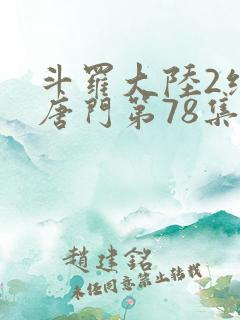 斗羅大陸2
唐門第78集
趙建銘
未經同意禁止轉載